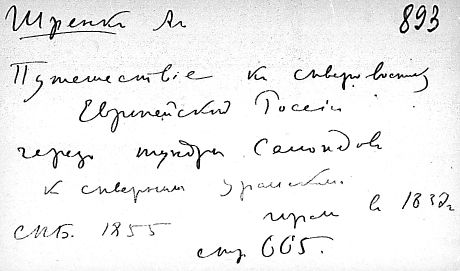 Шренк Ал 893
Путешествіе к северо востоку
Европейской Россіи
через тундры Самоидов
к северным Уральским
горам в 1837 г
СПБ. 1855
стр 665.